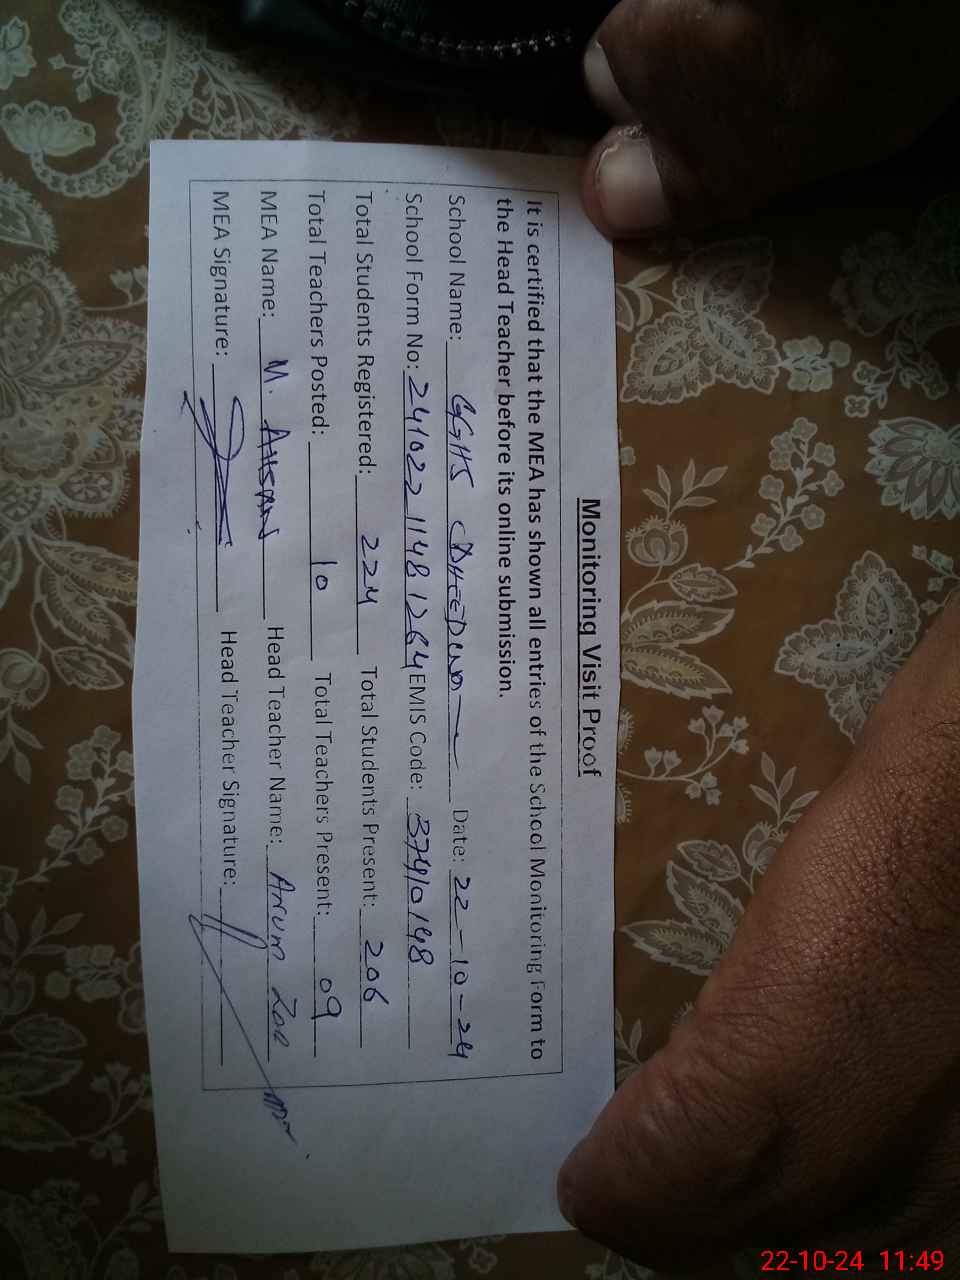 Monitoring Visit Proof
It is certified that the MEA has shown all entries of the School Monitoring Form to
the Head Teacher before its online submission.
School Name: GGHS Date: 22-10-24
School Form No: 24102211481264 EMIS Code: 37410148
Total Students Registered: 224 Total Students Present: 206
Total Teachers Posted: 10 Total Teachers Present: 09
MEA Name: M. AHSAN Head Teacher Name: Anum
MEA Signature: Head Teacher Signature:
22-10-24 11:49